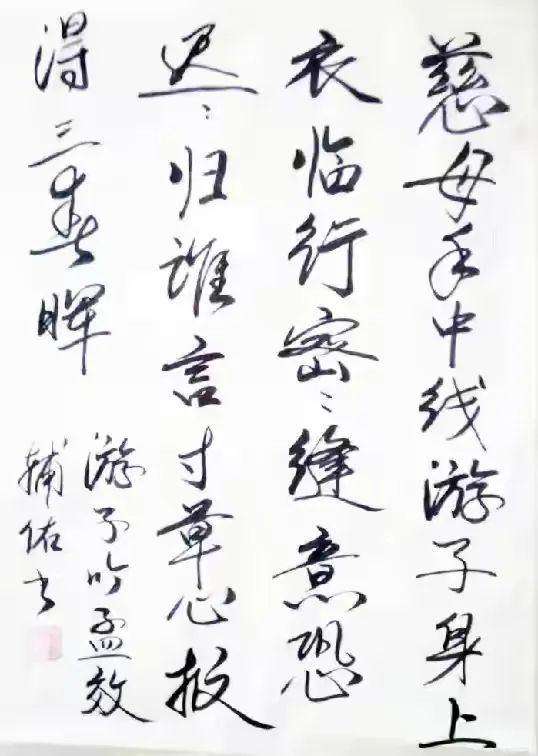 慈母手中线游子身上
衣临行密〻缝意恐
迟〻归谁言寸草心报
得三春晖
游子吟孟效
辅佑书